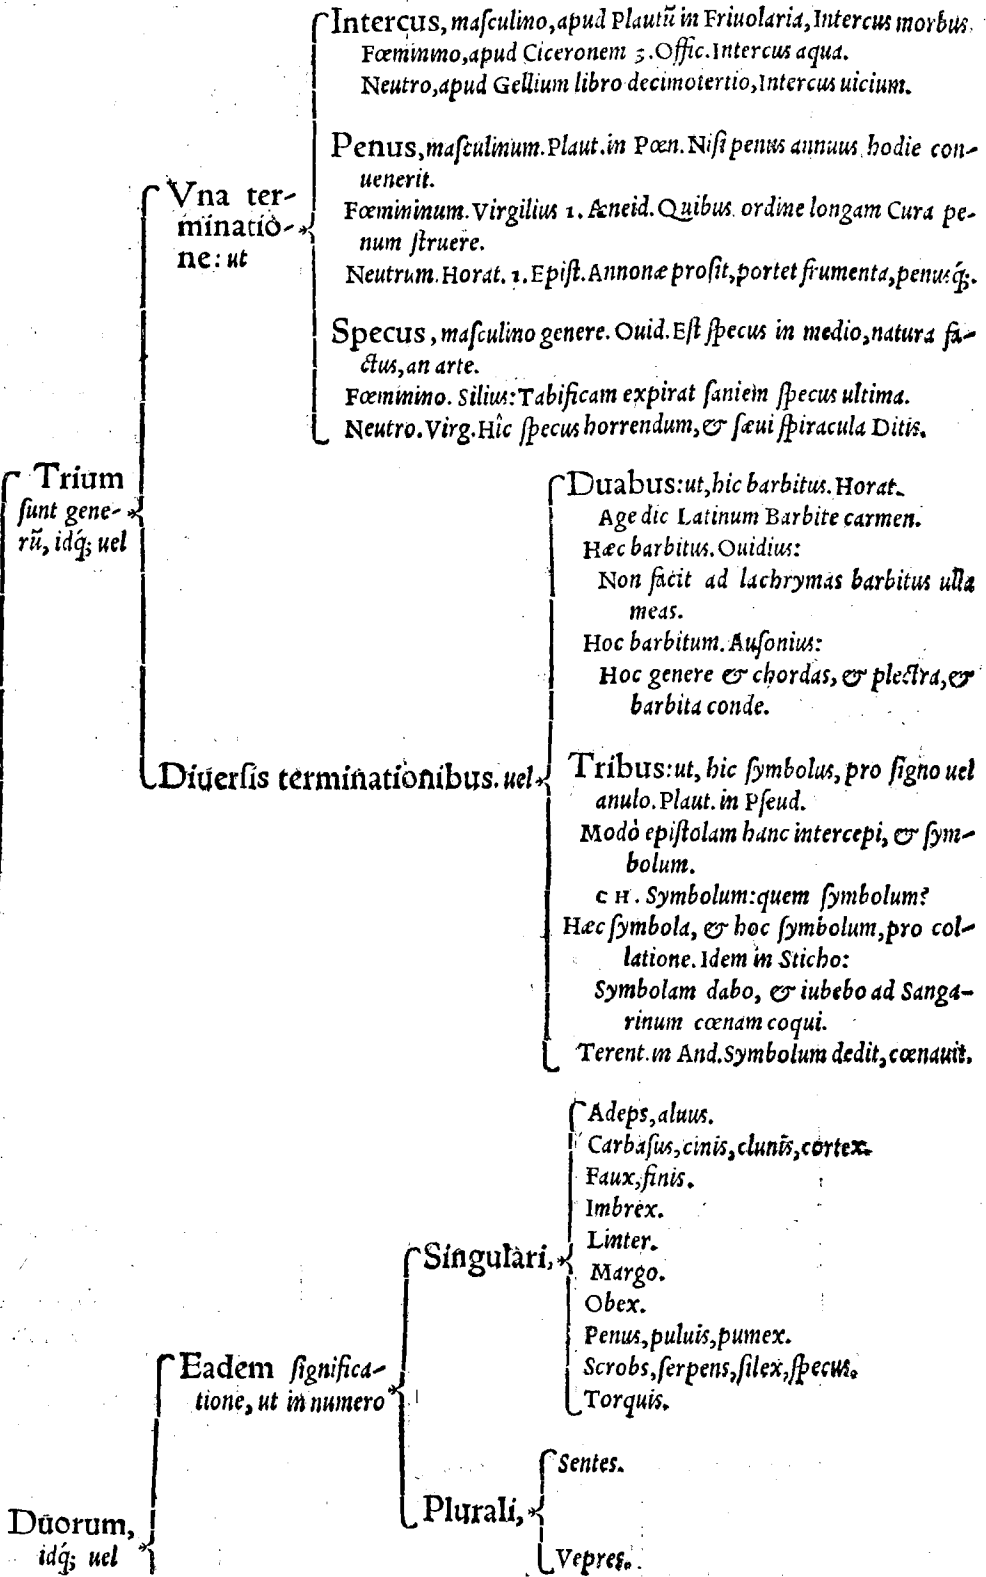 Intercus, maſculino, apud Plautū in Friuolaria, Intercus morbus.
Fœminino, apud Ciceronem 3. Offic. Intercus aqua.
Neutro, apud Gellium libro decimotertio, Intercus uicium.
Penus, maſculinum. Plaut. in Pœn. Niſi penus annuus hodie con-
uenerit.
Fœmininum. Virgilius 1. Æneid. Quibus ordine longam Cura pe-
num ſtruere.
Neutrum. Horat. 1. Epiſt. Annonæ proſit, portet frumenta, penusq́;.
Specus, maſculino genere. Ouid. Eſt ſpecus in medio, natura fa-
ctus, an arte.
Fœminino. Silius: Tabificam expirat ſaniem ſpecus ultima.
Neutro. Virg. Hîc ſpecus horrendum, & ſæui ſpiracula Ditis.
Vna ter-
minatio-
ne: ut
Trium
ſunt gene-
rū, idq́; uel
Diuerſis terminationibus. uel
Duabus: ut, hic barbitus. Horat.
Age dic Latinum Barbite carmen.
Hæc barbitus. Ouidius:
Non facit ad lachrymas barbitus ulla
meas.
Hoc barbitum. Auſonius:
Hoc genere & chordas, & plectra, &
barbita conde.
Tribus: ut, hic ſymbolus, pro ſigno uel
anulo. Plaut. in Pſeud.
Modò epiſtolam hanc intercepi, & ſym-
bolum.
CH. Symbolum: quem ſymbolum?
Hæc ſymbola, & hoc ſymbolum, pro col-
latione. Idem in Sticho:
Symbolam dabo, & iubebo ad Sanga-
rinum cœnam coqui.
Terent. in And. Symbolum dedit, cœnauit.
Duorum,
idq́; uel
Eadem ſignifica-
tione, ut in numero
Singulari,
Adeps, aluus.
Carbaſus, cinis, clunis, cortex.
Faux, finis.
Imbrex.
Linter.
Margo.
Obex.
Penus, puluis, pumex.
Scrobs, ſerpens, ſilex, ſpecus.
Torquis.
Plurali,
Sentes.
Vepres.